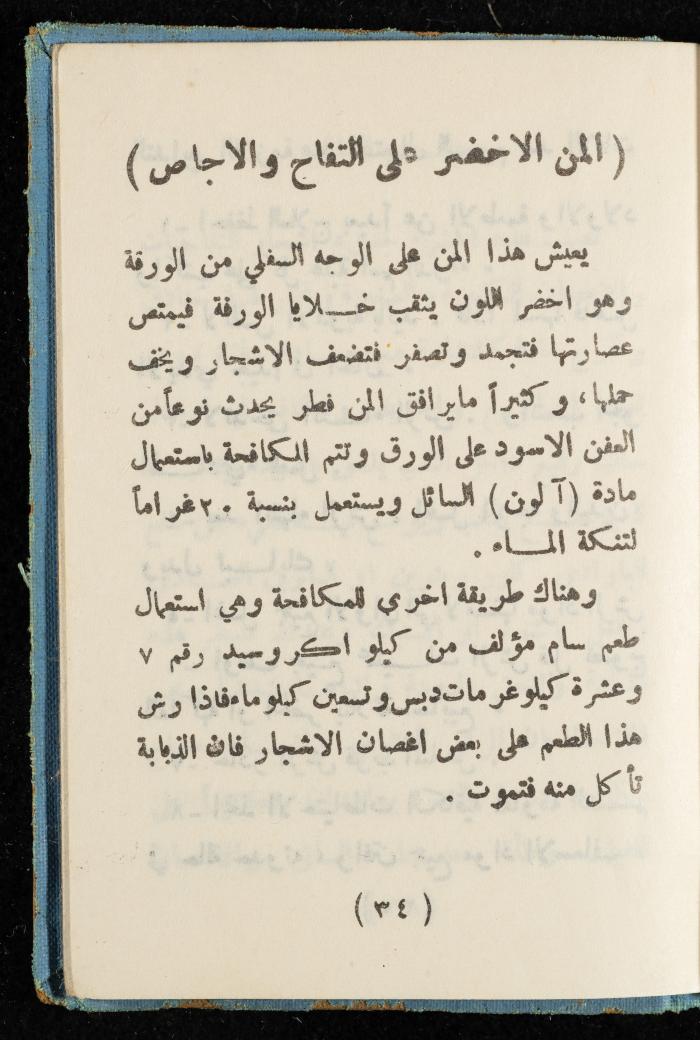 ( المن الاخضر على التفاح والاجاص )
يعيش هذا المن على الوجه السفلي من الورقة
وهو اخضر اللون يثقب خـــلايا الورقة فيمتص
عصارتها فتجمد وتصفر فتضعف الاشجار ويخف
حملها، وكثيراً مايرافق المن فطر يحدث نوعاًمن
العفن الاسود على الورق وتتم المكافحة باستعمال
مادة (آلون) السائل ويستعمل بنسبة ٢٠غراماً
لتنكة المـــاء .
وهناك طريقة اخرى للمكافحة وهي استعمال
طعم سام مؤلف من كيلو اكروسيد رقم ٧
وعشرة كيلوغرمات دبس وتسعين كيلو ماء فاذا رش
هذا الطعم على بعض اغصان الاشجار فان الذبابة
تأكل منه فتموت .
( ٣٤ )